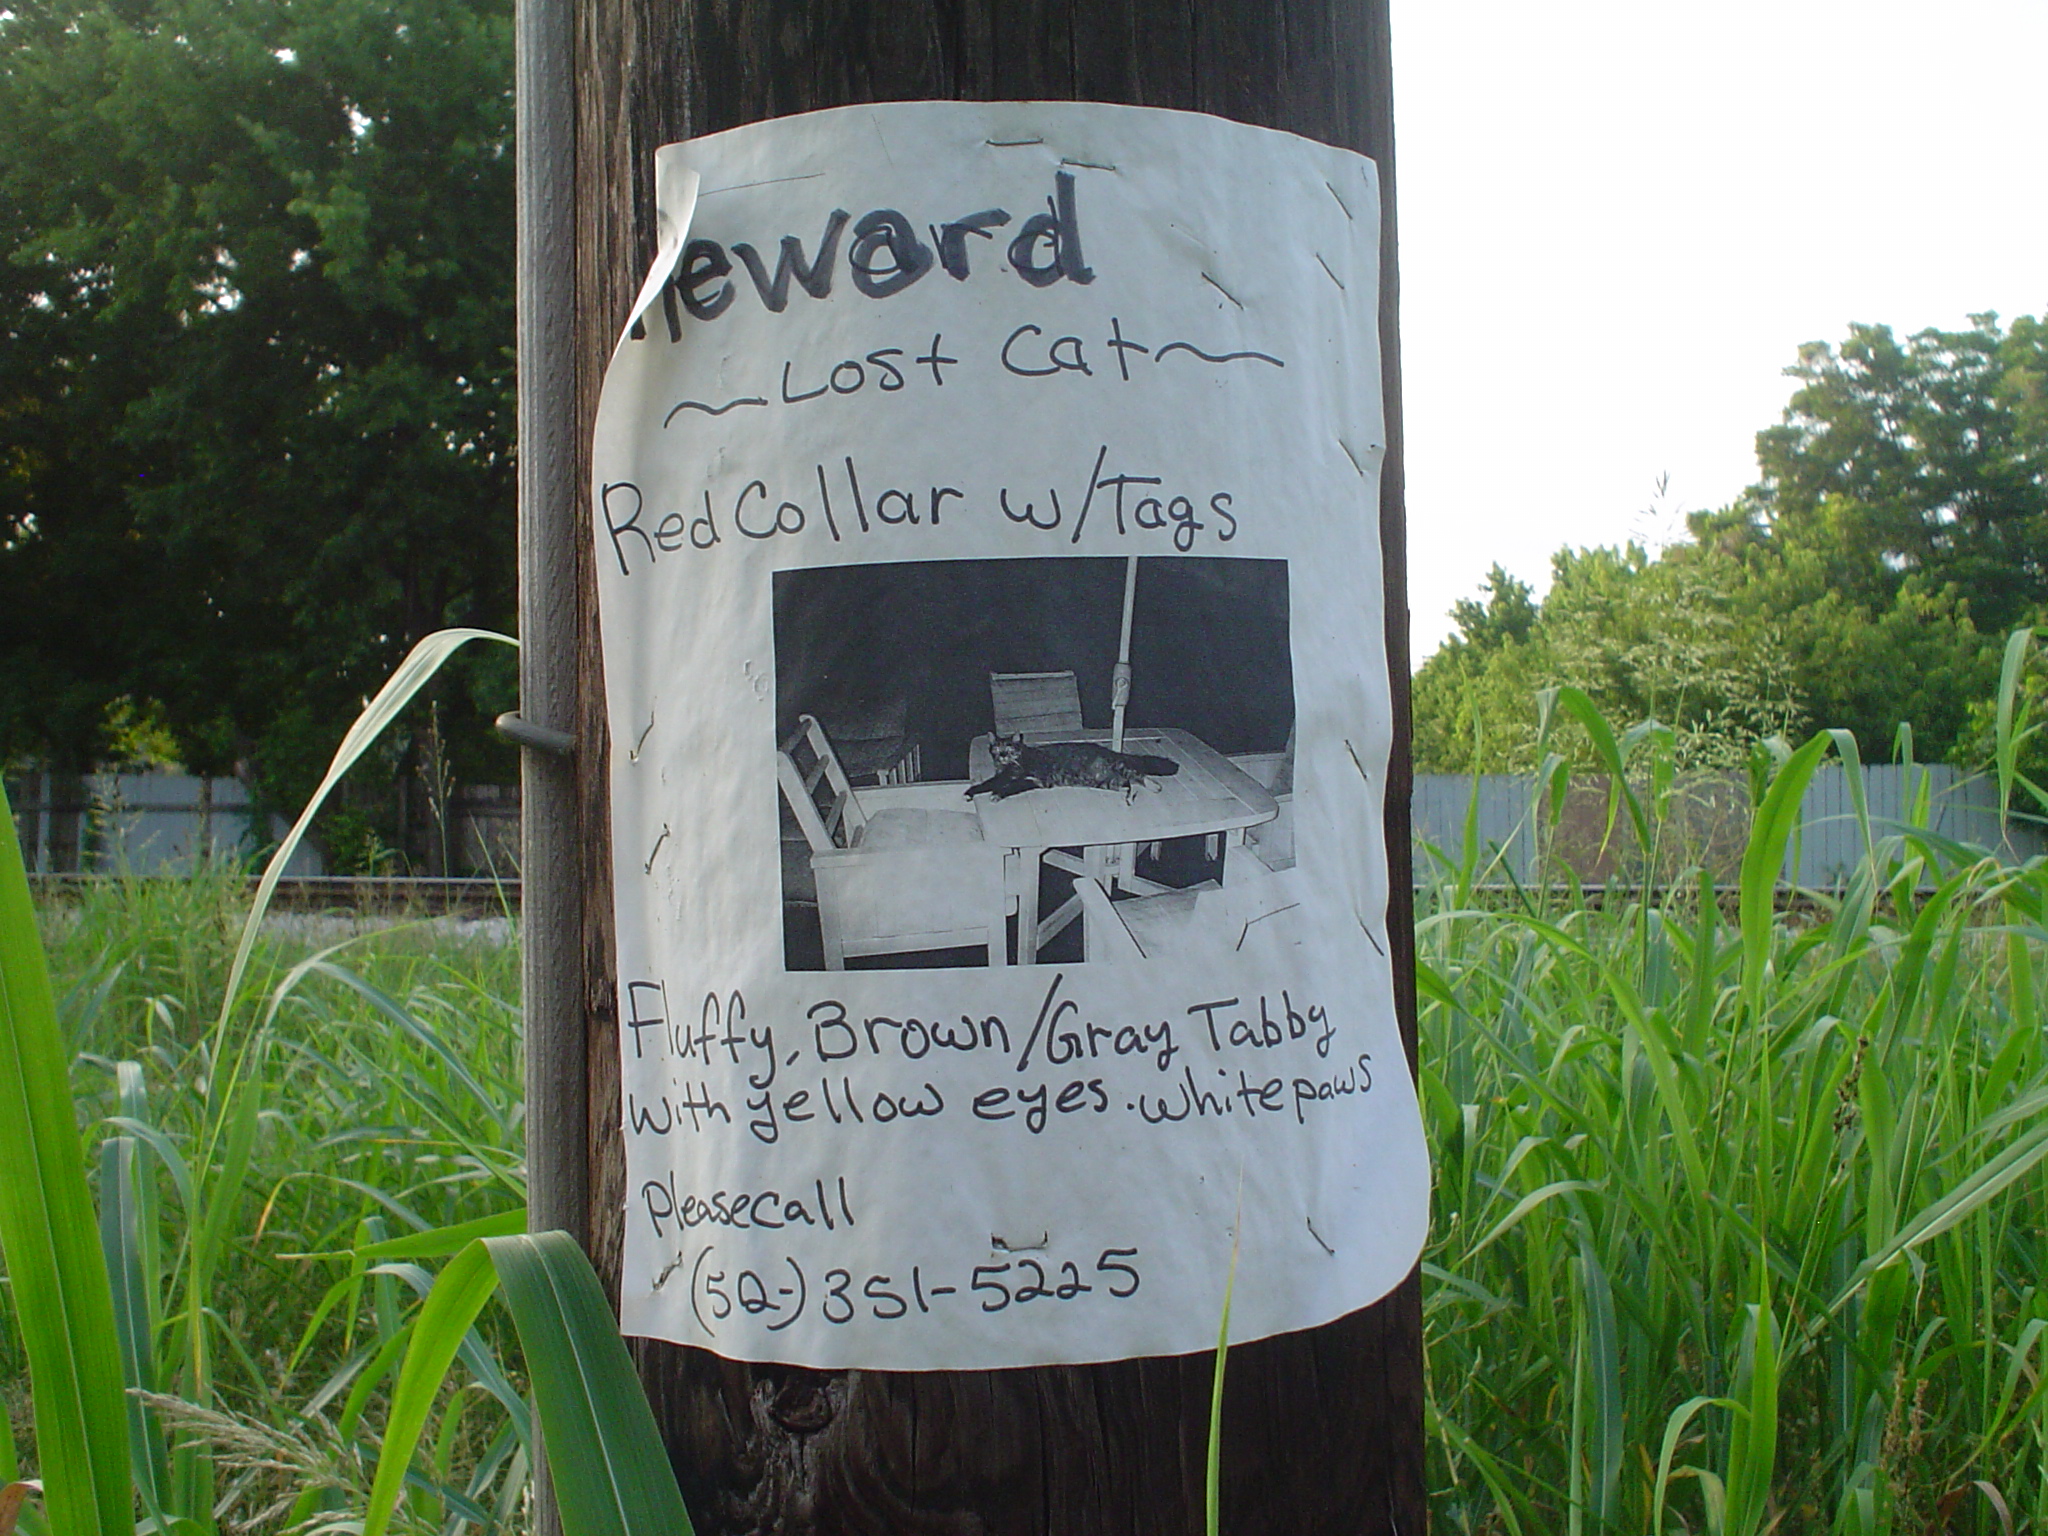 Reward
~Lost Cat~
Red Collar w/Tags
Fluffy, Brown/Gray Tabby
with yellow eyes. white paws
Please call
(502) 351-5225